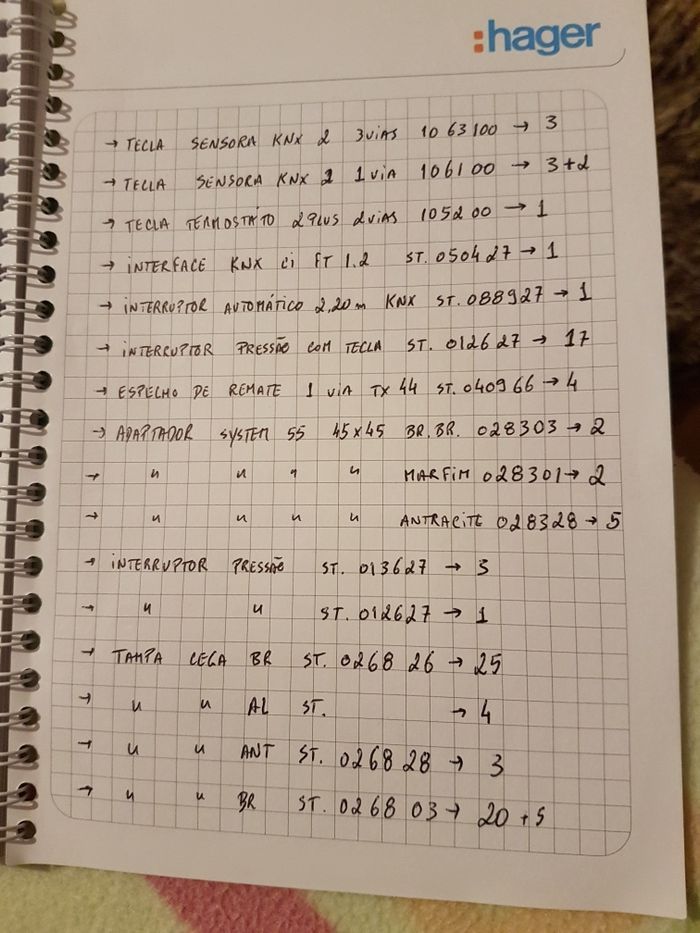 :hager
→ TECLA SENSORA KNX 2 3 ViAS 10 63100 → 3
→ TECLA SENSORA KNX 2 1 ViA 106100 → 3+2
→ TECLA TERMOSTÁTO 2 PLUS 2 ViAS 105200 → 1
→ iNTERFACE KNX Ci FT 1.2 ST. 050427 → 1
→ iNTERRUPTOR AUTOMÁTICO 2,20m KNX ST. 088927 → 1
→ iNTERRUPTOR PRESSÃO COM TECLA ST. 012627 → 17
→ ESPELHO DE REMATE 1 ViA TX 44 ST. 040966 → 4
→ ADAPTADOR SYSTEM 55 45x45 BR. BR. 028303 → 2
→ " " " " MARFiM 028301 → 2
→ " " " " ANTRACiTE 028328 → 5
→ iNTERRUPTOR PRESSÃO ST. 013627 → 3
→ " " ST. 012627 → 1
→ TAMPA CEGA BR ST. 0268 26 → 25
→ " " AL ST. → 4
→ " " ANT ST. 0268 28 → 3
→ " " BR ST. 0268 03 → 20 + 5